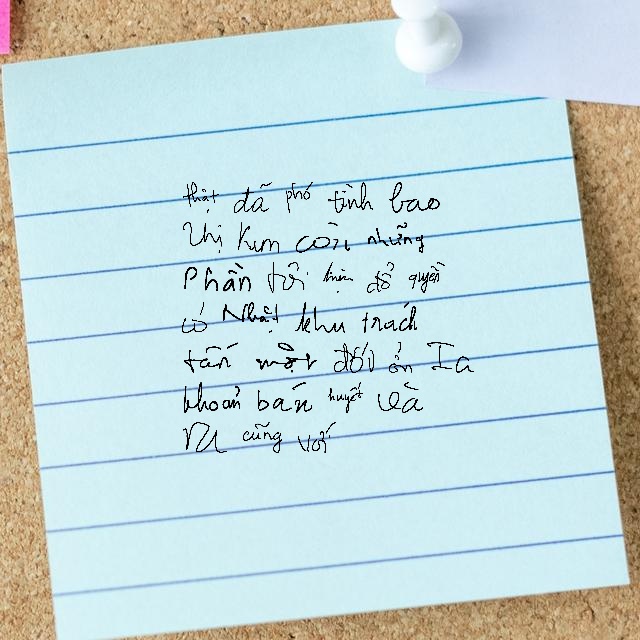 thật đã phó tình bao
Thị Kim còn những
Phần tôi đổ quyền
có Nhật khu trách
tấn một đối ổn Ia
khoản bán huyết và
cũng với